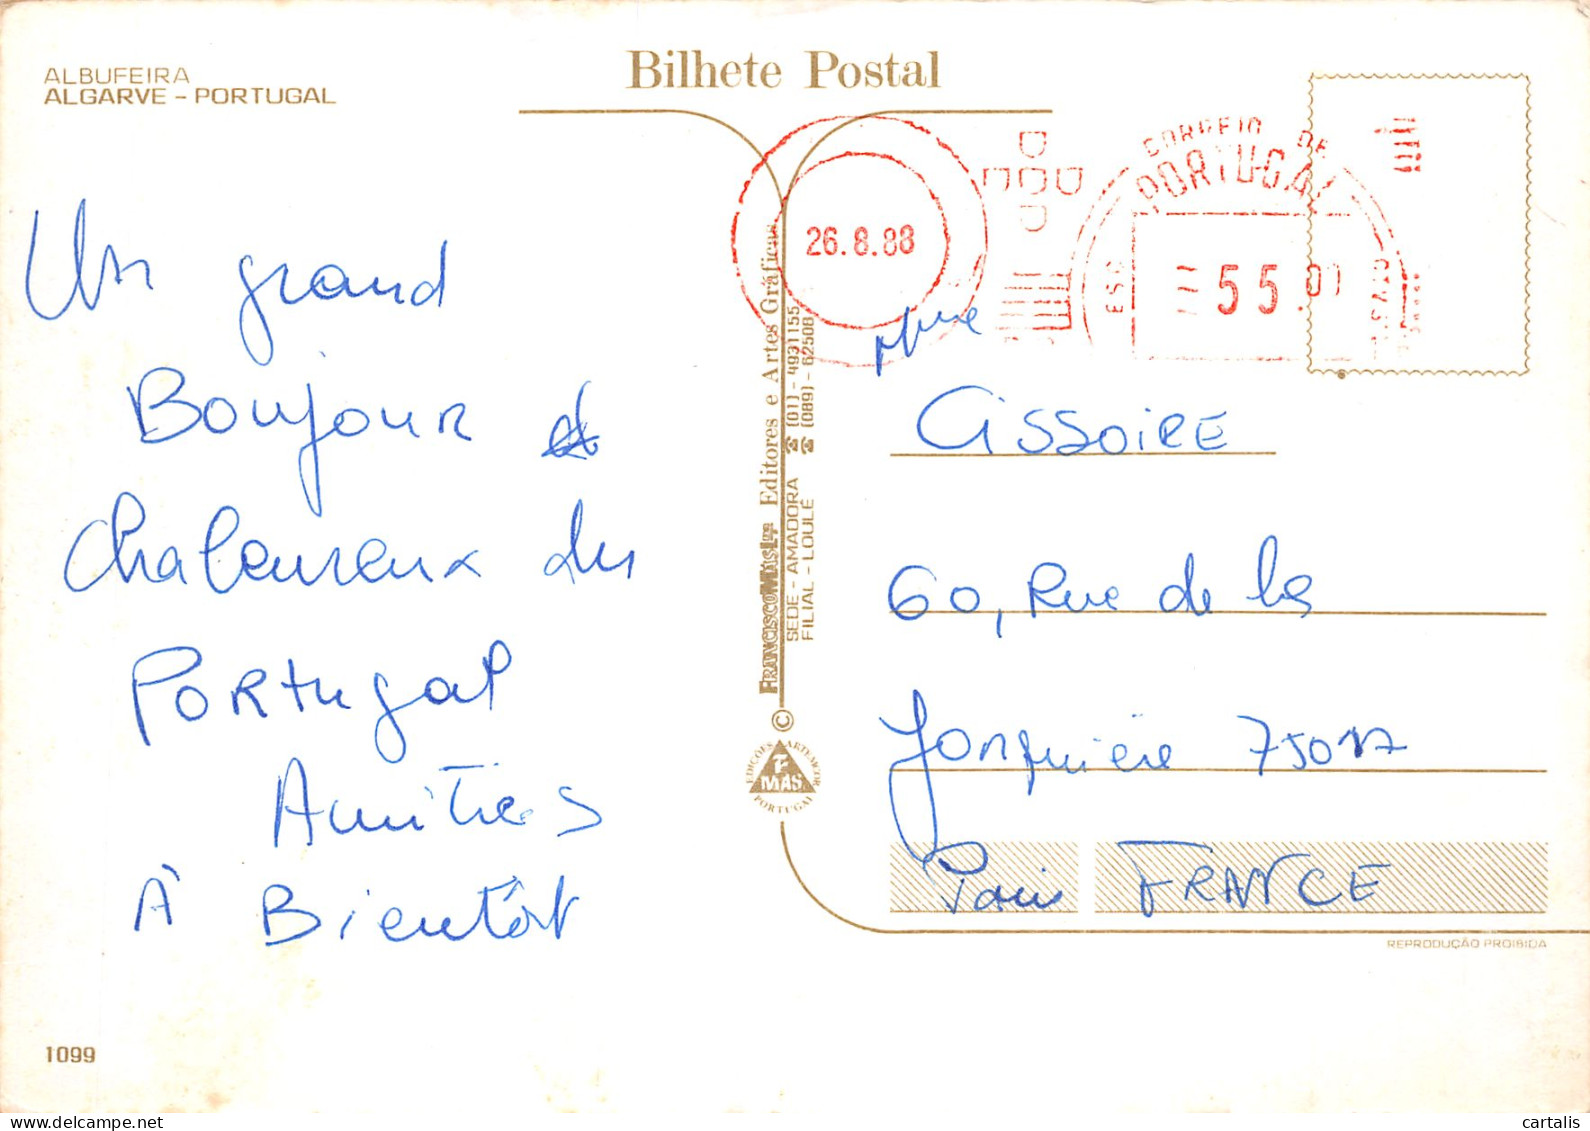 ALBUFEIRA
ALGARVE - PORTUGAL
Bilhete Postal
26.8.88
CORREIO DE
PORTUGAL
55.0
Un grand
Bonjour et
chaleureux du
Portugal
Amitiés
À Bientôt
Mme
Cissoire
60, Rue de la
Jonquière 75017
Paris FRANCE
FRANCISCO MAS LDA Editores e Artes Gráficas
SEDE - AMADORA ☎ (01) - 4931155
FILIAL - LOULÉ ☎ (089) - 62508
©
EDIÇÕES ARTEMCOR
MAS
PORTUGAL
REPRODUÇÃO PROIBIDA
1099
cartalis